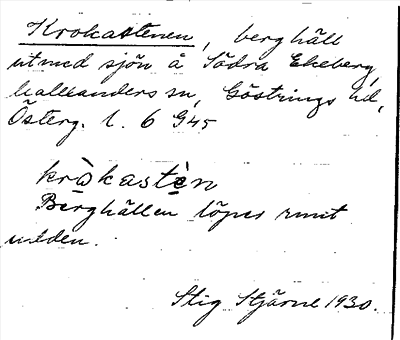 Krokastenen, berghäll
utmed sjön å Södra Ekeberg,
Kalleanders sn, Göstrings hd,
Österg. l. 6 G45
kròkastèn
Berghällen löper runt
udden.
Stig Stjärne 1930.